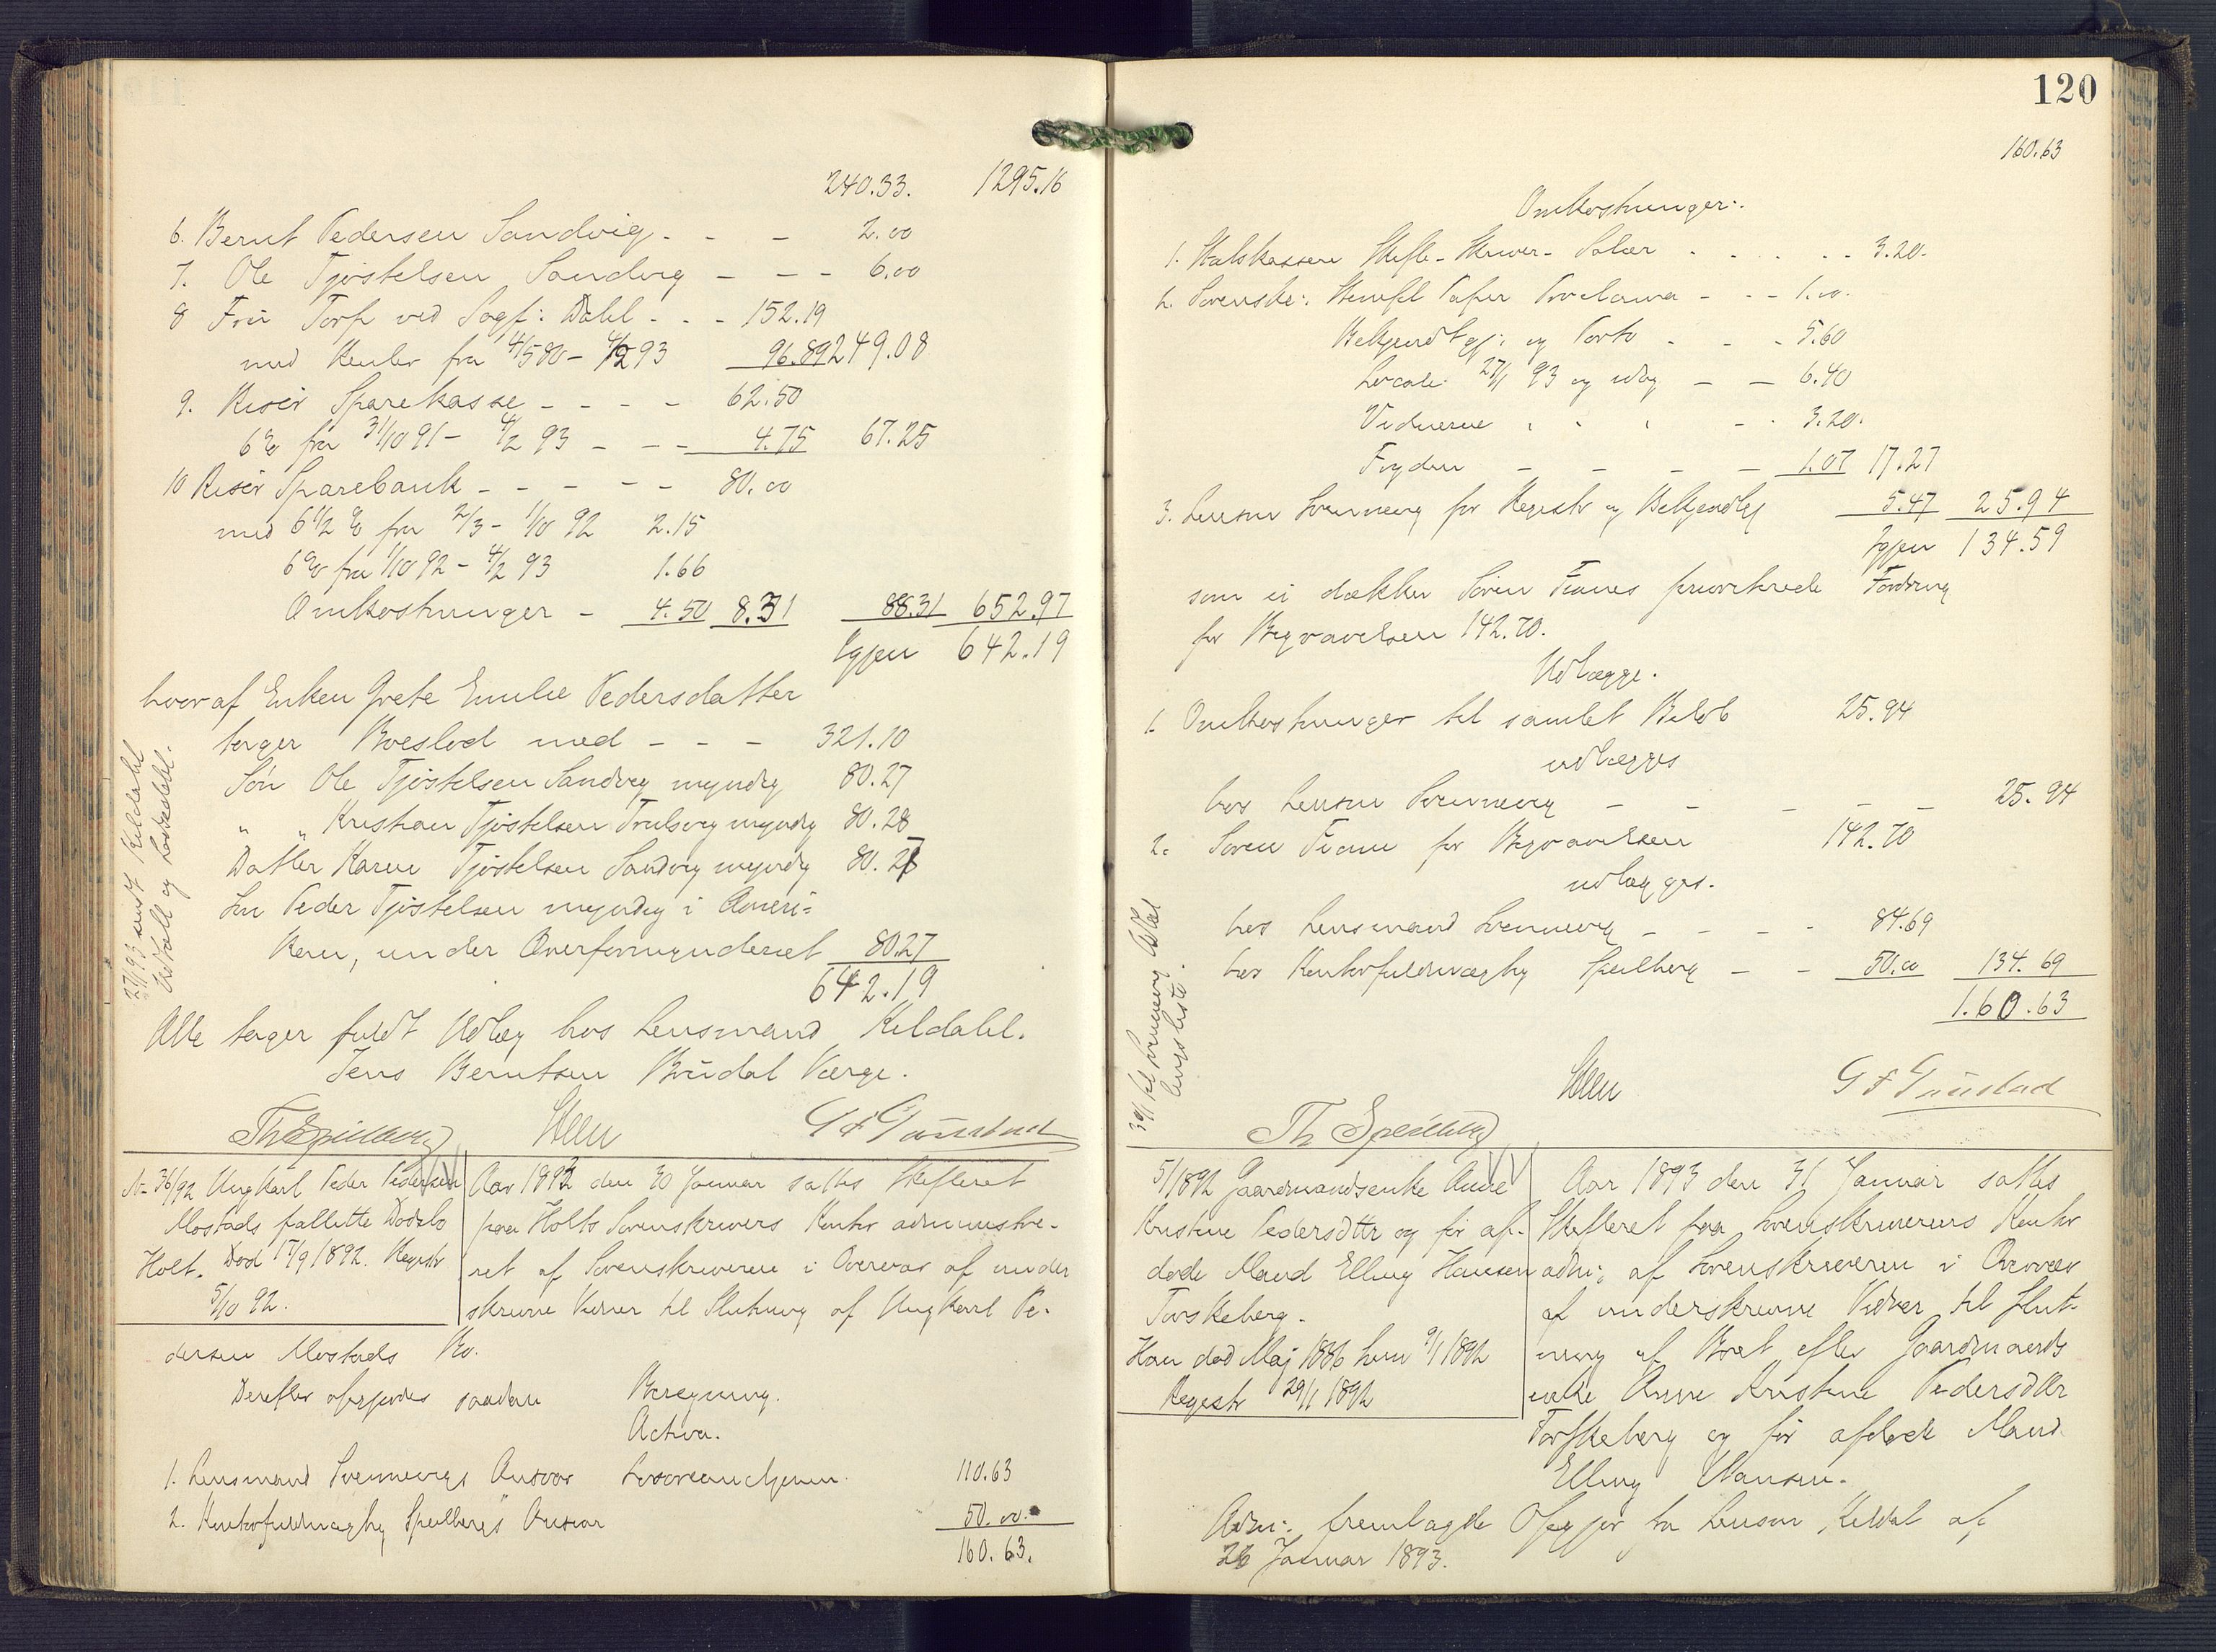 240.33. 1295.16
6. Bernt Pedersen Sandvig - - - 2.00
7. Ole Tjøstelsen Sandvig - - - 6.00
8 Fru Torp ved Sagf: Dahl - - - 152.19
med Renter fra 4/5 80 - 4/2 93 96.89 249.08
9. Risør Sparekasse - - - - 62.50
6% fra 31/10 91 - 4/2 93 - - - 4.75 67.25
10 Risør Sparebank - - - - - 80.00
med 6 1/2 % fra 2/3 - 1/10 92 2.15
6% fra 1/10 92 - 4/2 93 1.66
Omkostninger - 4.50 8.31 88.31 652.97
Igjen 642.19
hvoraf Enken Grete Emilie Pedersdatter
tager Boeslod med - - - 321.10
Søn Ole Tjøstelsen Sandvig myndig 80.27
" " Kristian Tjøstelsen Trulsvig myndig 80.28
Datter Karen Tjøstelsen Sandvig myndig 80.27
Søn Peder Tjøstelsen myndig i Ameri=
ken, under Overformynderiet 80.27
642.19
27/1 93 sendt Kildahl
Udtall og Lodseddel.
Alle tager fuldt Udlæg hos Lensmand Kildahl.
Jens Berntsen Brudal Værge.
Th Speilberg Steen G F Gunstad
No 36/92 Ungkarl Peder Pedersen
Mostads fallitte Dødsbo
Holt. Død 17/9 1892. Registr
5/10 92.
Aar 1893 den 30 Januar sattes Skifteret
paa Holts Sorenskrivers Kontor administre-
ret af Sorenskriveren i Overvær af under
skrevne Vidner til Slutning af Ungkarl Pe-
dersen Mostads Bo.
Derefter afgjordes saadan Beregning.
Activa.
1. Lensmand Svennevigs Ansvar Løsøreauctionen 110.63
2. Kontorfuldmægtig Speilbergs Ansvar 50.00
160.63.
120
160.63
Omkostninger:
1. Statskassen Skifte-Skriver-Salær - - - - - 3.20.
2. Sorenskr: Stempl Papir Proclama - - - 1.00.
Bekjendtgj: og Porto - - - 5.60
Locale 27/1 93 og idag - - 6.40
Vidnerne - - 3.20.
Fogden - - - - 1.07 17.27
3. Lensm Svennevig for Registr og Bekjendtg 5.47 25.94
Igjen 134.59
som ei dækker Søren Fianes prioriterede Fordring
for Begravelsen 142.70.
Udlægge.
1. Omkostninger til samlet Beløb 25.94
udlægges
hos Lensm Svennevig - - - - - 25.94
2. Søren Fiane for Begravelsen 142.70
udlægges.
hos Lensmand Svennevig - - - - 84.69
hos Kontorfuldmægtig Speilberg - - 50.00 134.69
1.60.63
Steen G F Gunstad
Th Speilberg
5/1892 Gaardmandsenke Anne
Kristine Pedersdttr og før af-
døde Mand Elling Hansen
Torskeberg.
Han død Maj 1886 hun 9/1 1892
Registr 29/1 1892
Aar 1893 den 31 Januar sattes
Skifteret paa Sorenskriverens Kontor
adm: af Sorenskriveren i Overvær
af underskrevne Vidner til Slut-
ning af Boet efter Gaardmands
enke Anne Kristine Pedersdttr
Torskeberg og før afdøde Mand
Elling Hansen.
Adm: fremlagde Opgjør fra Lensm Kildal af
26 Januar 1893.